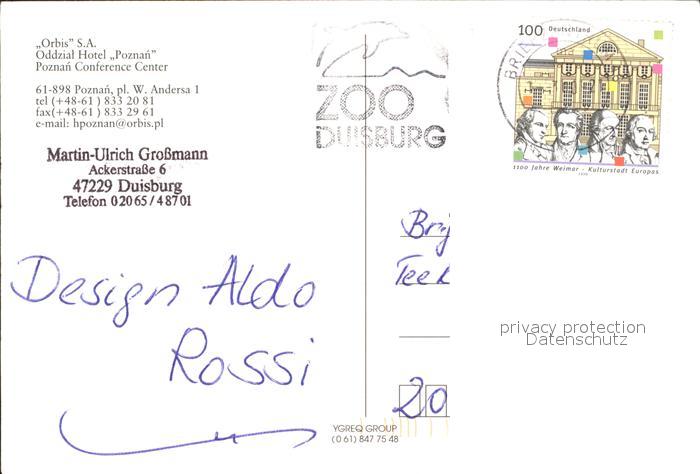 „Orbis" S.A.
Oddział Hotel „Poznań"
Poznań Conference Center
61-898 Poznań, pl. W. Andersa 1
tel (+48-61 ) 833 20 81
fax(+48-61 ) 833 29 61
e-mail: hpoznan@orbis.pl
Martin-Ulrich Großmann
Ackerstraße 6
47229 Duisburg
Telefon 02065/48701
Design Aldo
Rossi
ZOO
DUISBURG
100 Deutschland
1100 Jahre Weimar - Kulturstadt Europas
20
privacy protection
Datenschutz
YGREQ GROUP
(0 61) 847 75 48